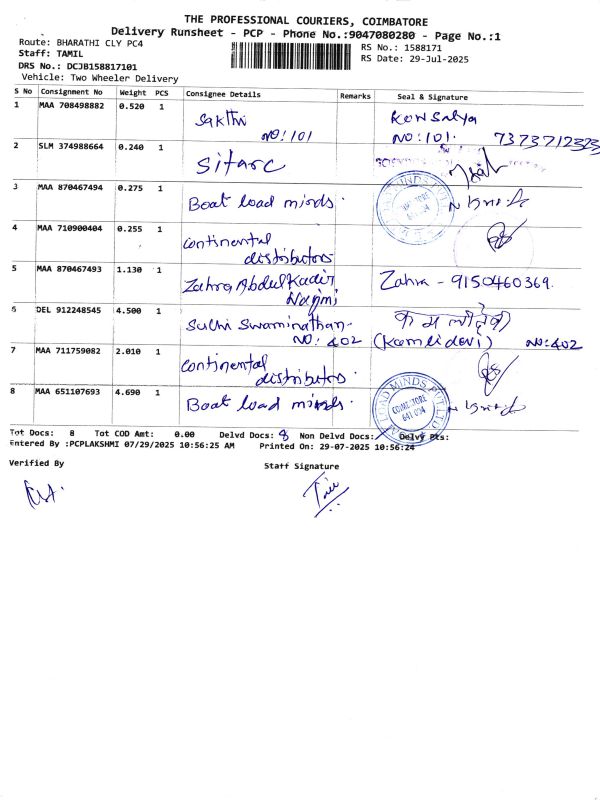 THE PROFESSIONAL COURIERS, COIMBATORE
Delivery Runsheet - PCP - Phone No.:9047080280 - Page No.:1
Route: BHARATHI CLY PC4
RS No.: 1588171
Staff: TAMIL
RS Date: 29-Jul-2025
DRS No.: DCJB158817101
Vehicle: Two Wheeler Delivery
S No Consignment No Weight PCS Consignee Details Remarks Seal & Signature
1 MAA 708498882 0.520 1 Sakthi Kowsalya
NO:101 NO:101.
2 SLM 374988664 0.240 1 Sitarc
3 MAA 870467494 0.275 1 Boat load minds.
4 MAA 710900404 0.255 1 continental
distributors
5 MAA 870467493 1.130 1 Zahra Abdul Kadir Zahra - 9150460369.
Najmi
6 DEL 912248545 4.500 1 Suthi Swaminathan-
NO: 402 (Kamlidevi) NO:402
7 MAA 711759082 2.010 1 continental
distributors
8 MAA 651107693 4.690 1 Boat load minds.
COIMBATORE
641 004
Tot Docs: 8 Tot COD Amt: 0.00 Delvd Docs: 8 Non Delvd Docs: Delvy Pts:
Entered By :PCPLAKSHMI 07/29/2025 10:56:25 AM Printed On: 29-07-2025 10:56:24
Verified By
Staff Signature